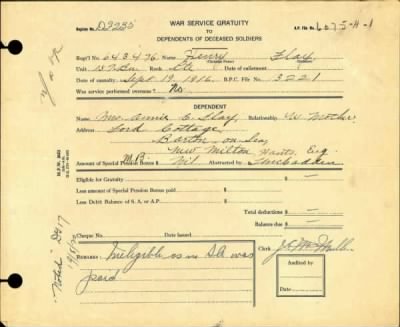 WAR SERVICE GRATUITY
TO
DEPENDENTS OF DECEASED SOLDIERS
Register No. D2235
A.P. File No. 6075-H-1
Regt'l No. 643476 Henry Flay
(Christian Name) (Surname)
Unit 157 Bn Rank Pte Date of enlistment
Date of casualty Sept 19. 1916. B.P.C. File No. 3221
Was service performed overseas? No
DEPENDENT
Name Mrs. Annie E. Flay Relationship Mother
Address Ford Cottage,
Barton on Sea,
New Milton Hants. Eng.
Amount of Special Pension Bonus Nil Abstracted by
Eligible for Gratuity $ —
Less amount of Special Pension Bonus paid $
Less Debit Balance of S.A. or A.P. $
Total deductions $ —
Balance due $ —
Cheque No. Date issued
Remarks Ineligible as no SA was
paid
Clerk
Audited by
Date
Noted D4 17